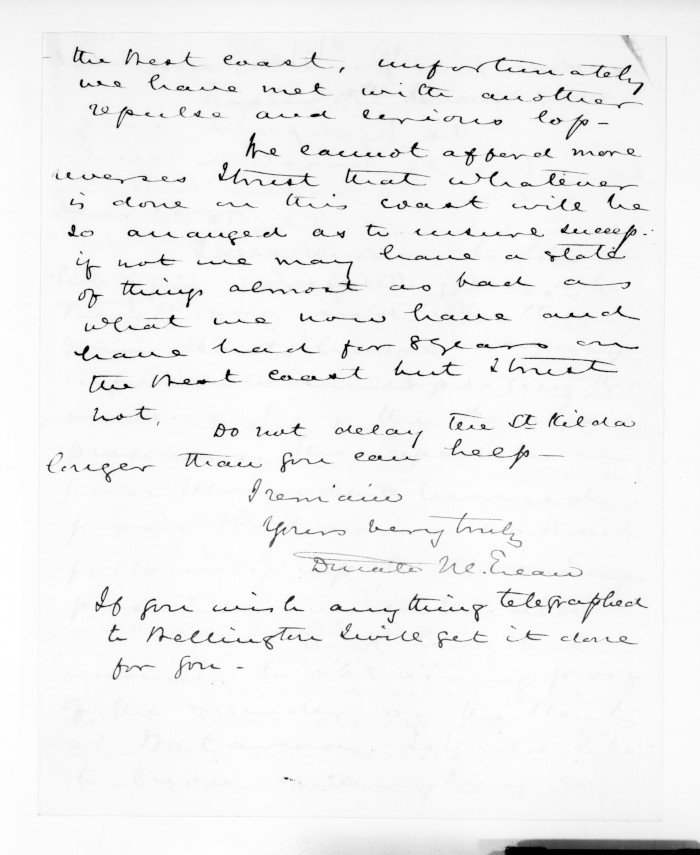 the West coast, unfortunately
we have met with another
repulse and serious loss -
We cannot afford more
reverses I trust that whatever
is done on this coast will be
so arranged as to insure success.
if not we may have a state
of things almost as bad as
what we now have and
have had for 8 years on
the West coast but I trust
not.
Do not delay the St Kilda
longer than you can help -
I remain
Yours very truly
Donald McLean
If you wish anything telegraphed
to Wellington I will get it done
for you -